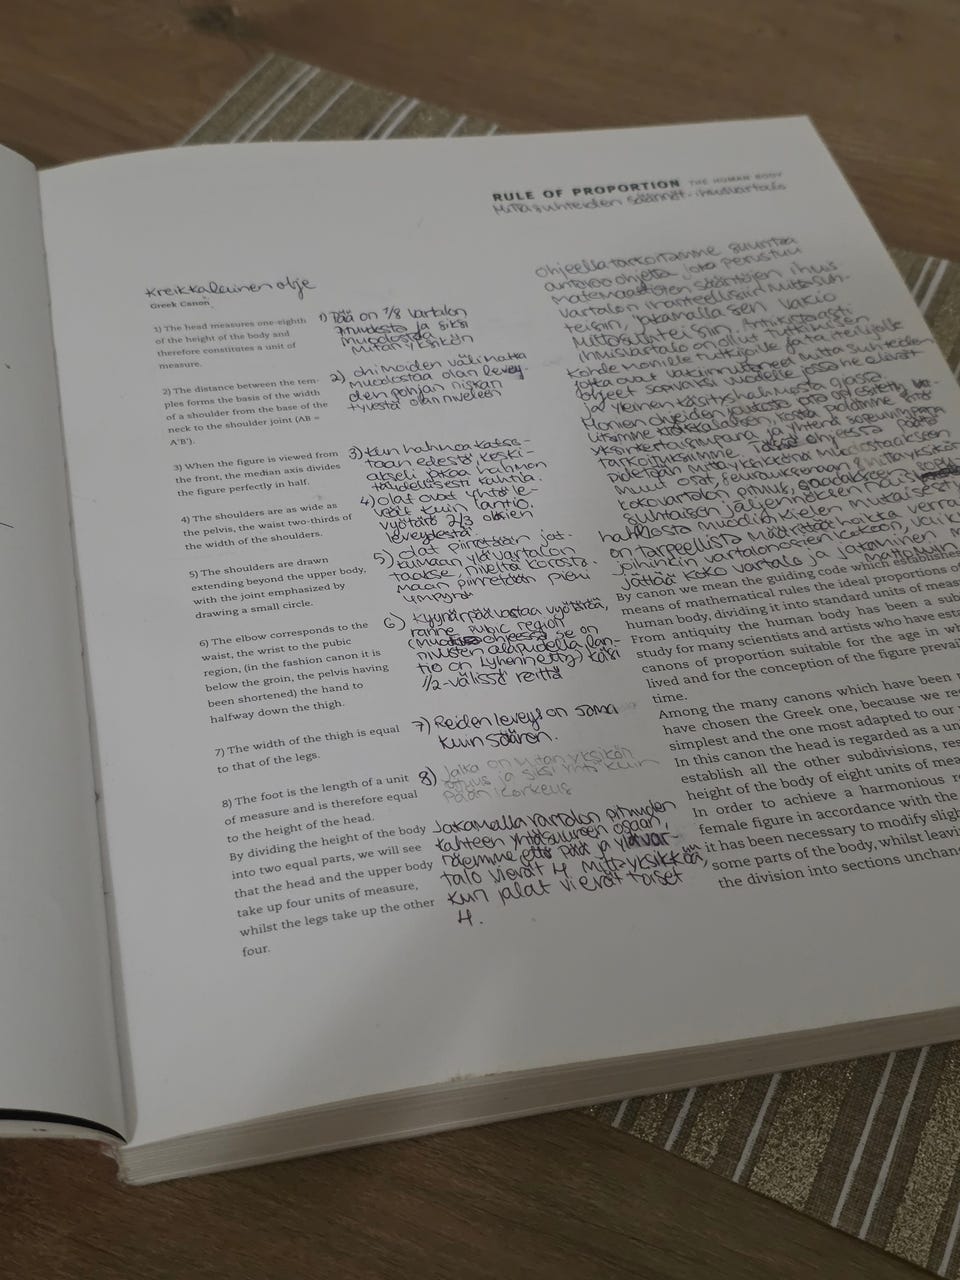 RULE OF PROPORTION THE HUMAN BODY
Mittasuhteiden säännöt - ihmisvartalo
Kreikkalainen ohje
Greek Canon
1) The head measures one-eighth
of the height of the body and
therefore constitutes a unit of
measure.
2) The distance between the tem-
ples forms the basis of the width
of a shoulder from the base of the
neck to the shoulder joint (AB =
A'B').
3) When the figure is viewed from
the front, the median axis divides
the figure perfectly in half.
4) The shoulders are as wide as
the pelvis, the waist two-thirds of
the width of the shoulders.
5) The shoulders are drawn
extending beyond the upper body,
with the joint emphasized by
drawing a small circle.
6) The elbow corresponds to the
waist, the wrist to the pubic
region, (in the fashion canon it is
below the groin, the pelvis having
been shortened) the hand to
halfway down the thigh.
7) The width of the thigh is equal
to that of the legs.
8) The foot is the length of a unit
of measure and is therefore equal
to the height of the head.
By dividing the height of the body
into two equal parts, we will see
that the head and the upper body
take up four units of measure,
whilst the legs take up the other
four.
1) Pää on 1/8 vartalon
pituudesta ja siksi
muodostaa
mitan yksikön
2) ohimoiden välimatka
muodostaa olan levey-
den pohjan niskan
tyvestä olan niveleen
3) Kun hahmoa katso-
taan edestä, keski-
akseli jakaa hahmon
täydellisesti kahtia.
4) olat ovat yhtä le-
veät kuin lantio.
vyötärö 2/3 olkien
leveydestä
5) olat piirretään jat-
kumaan ylävartalon
taakse, niveltä korosta-
maan piirretään pieni
ympyrä
6) Kyynärpää vastaa vyötäröä,
ranne pubic region
ohjeessa se on
nivusten alapuolella lan-
tio on lyhennetty) käsi
1/2-välissä reittä
7) Reiden leveys on sama
kuin säären.
8) Jalka on mitan yksikön
pituus ja siksi yhtä kuin
pään korkeus
Jakamalla vartalon pituuden
kahteen yhtäsuureen osaan,
näemme että pää ja ylävar-
talo vievät 4 mittayksikköä,
kun jalat vievät toiset
4.
Ohjeella tarkoitamme suuntaa
antavaa ohjetta joka perustuu
matemaattisten sääntöjen ihmis
vartalon ihanteellisiin mittasuh-
teisiin, jakamalla sen vakio
mittasuhteisiin. Antiikista asti
ihmisvartalo on ollut tutkimisen
kohde monille tutkijoille ja taiteilijoille
jotka ovat vakiinnuttaneet mittasuhteiden
ohjeet sopivaksi vuodelle jossa he elivät
ja yleinen käsitys hahmosta
Monien ohjeiden joukosta
kreikkalaisen, koska pidämme sitä
yksinkertaisimpana ja yhtenä sopeutuvimpana
tarkoituksiimme. Tässä ohjeessa päätä
pidetään mittayksikkönä muodostaakseen
muut osat, seurauksenaan 8 mittayksikön
kokovartalon pituus, saadakseen
suhtaisen jäljennöksen
hahmosta muodin kielen mukaisesti
on tarpeellista
joihinkin vartalonosien kokoon,
jättää koko vartalo ja jakaminen
By canon we mean the guiding code which establishes
means of mathematical rules the ideal proportions of
human body, dividing it into standard units of
From antiquity the human body has been a
study for many scientists and artists who have
canons of proportion suitable for the age in
lived and for the conception of the figure
time.
Among the many canons which have been
have chosen the Greek one, because we
simplest and the one most adapted to our
In this canon the head is regarded as a
establish all the other subdivisions,
height of the body of eight units of
In order to achieve a harmonious
female figure in accordance with the
it has been necessary to modify
some parts of the body, whilst
the division into sections